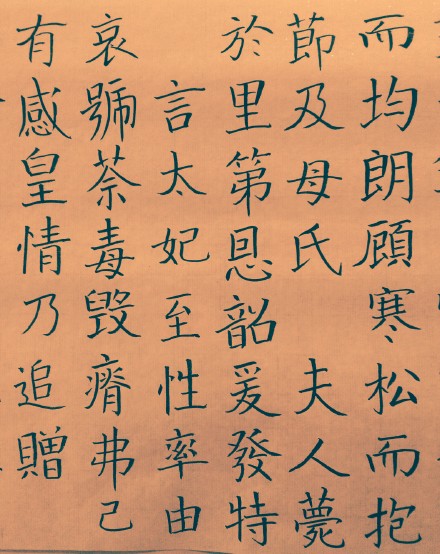 而均朗顧寒松而抱
節及母氏 夫人薨
於里第恩韶爰發特
言太妃至性率由
哀號荼毒毀瘠弗己
有感皇情乃追贈